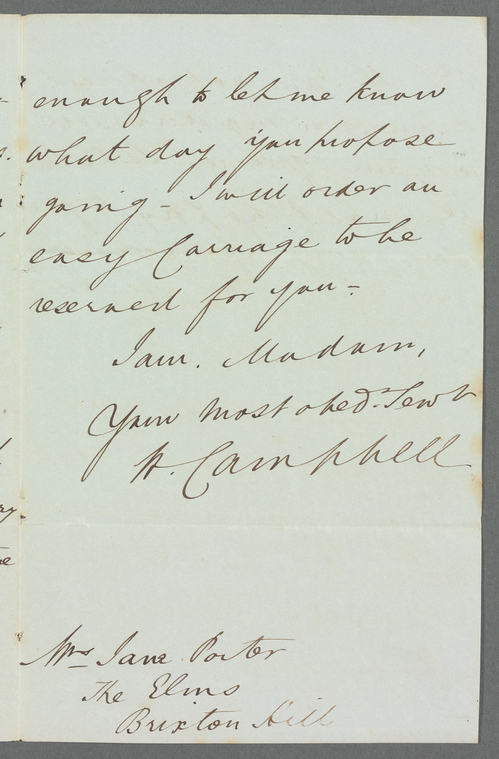 enough to let me know
what day you propose
going - I will order an
easy Carriage to be
reserved for you -
I am. Madam,
Your most obedt. Servt
H. Campbell
Mrs Jane Porter
The Elms
Brixton Hill